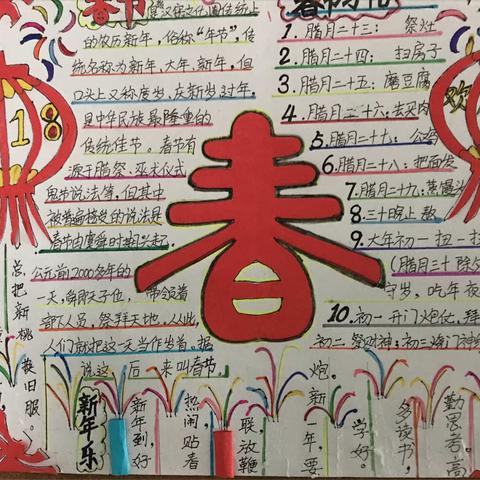 春节
的农历新年,俗称"年节",传
统名称为新年、大年、新年,但
口头上又称度岁、庆新岁、过年,
是中华民族最隆重的
传统佳节。春节有
源于腊祭、巫术仪式
鬼节说法等,但其中
被普遍接受的说法是
春节由虞舜时期兴起。
公元前2000多年的
一天,舜即天子位,带领着
部下人员,祭拜天地。从此,
人们就把这一天当作岁首。据
说这 后来叫春节
春
春节习俗
1.腊月二十三:祭灶
2.腊月二十四:扫房子
3.腊月二十五:磨豆腐
4.腊月二十六:去买肉
5.腊月二十七:
6.腊月二十八:把面发
7.腊月二十九:蒸馒头
8.三十晚上熬
9.大年初一扭一扭
(腊月三十除夕
守岁,吃年夜
10.初一开门炮仗,拜
初二祭财神;初三烧门神
18
欢
总把新桃换旧服。
新年乐
新年到,好
热闹,贴春
联,放鞭
炮。新
一年,要
学好。
多读书,
勤思考,高